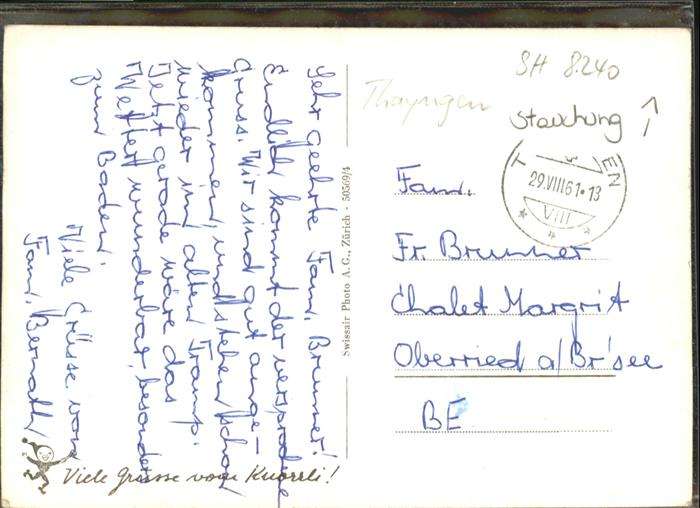 SH 8240
Thayngen
Stauchung
T EN
29.VIII61-13
VIII
Sehr geehrte Fam. Brunner!
Endlich kommt der versprochene
Gruss. Wir sind gut ange-
kommen, und stehen schon
wieder im alten Tramp.
Jetzt gerade wäre das
Wetter wunderbar, besonders
zum Baden.
Viele Grüsse von
Fam. Bernath
Viele Grüsse vom Knorrli!
Swissair Photo A. G., Zürich - 50569/4
Fam.
Fr. Brunner
Chalet Margrit
Oberried a/Br'see
BE